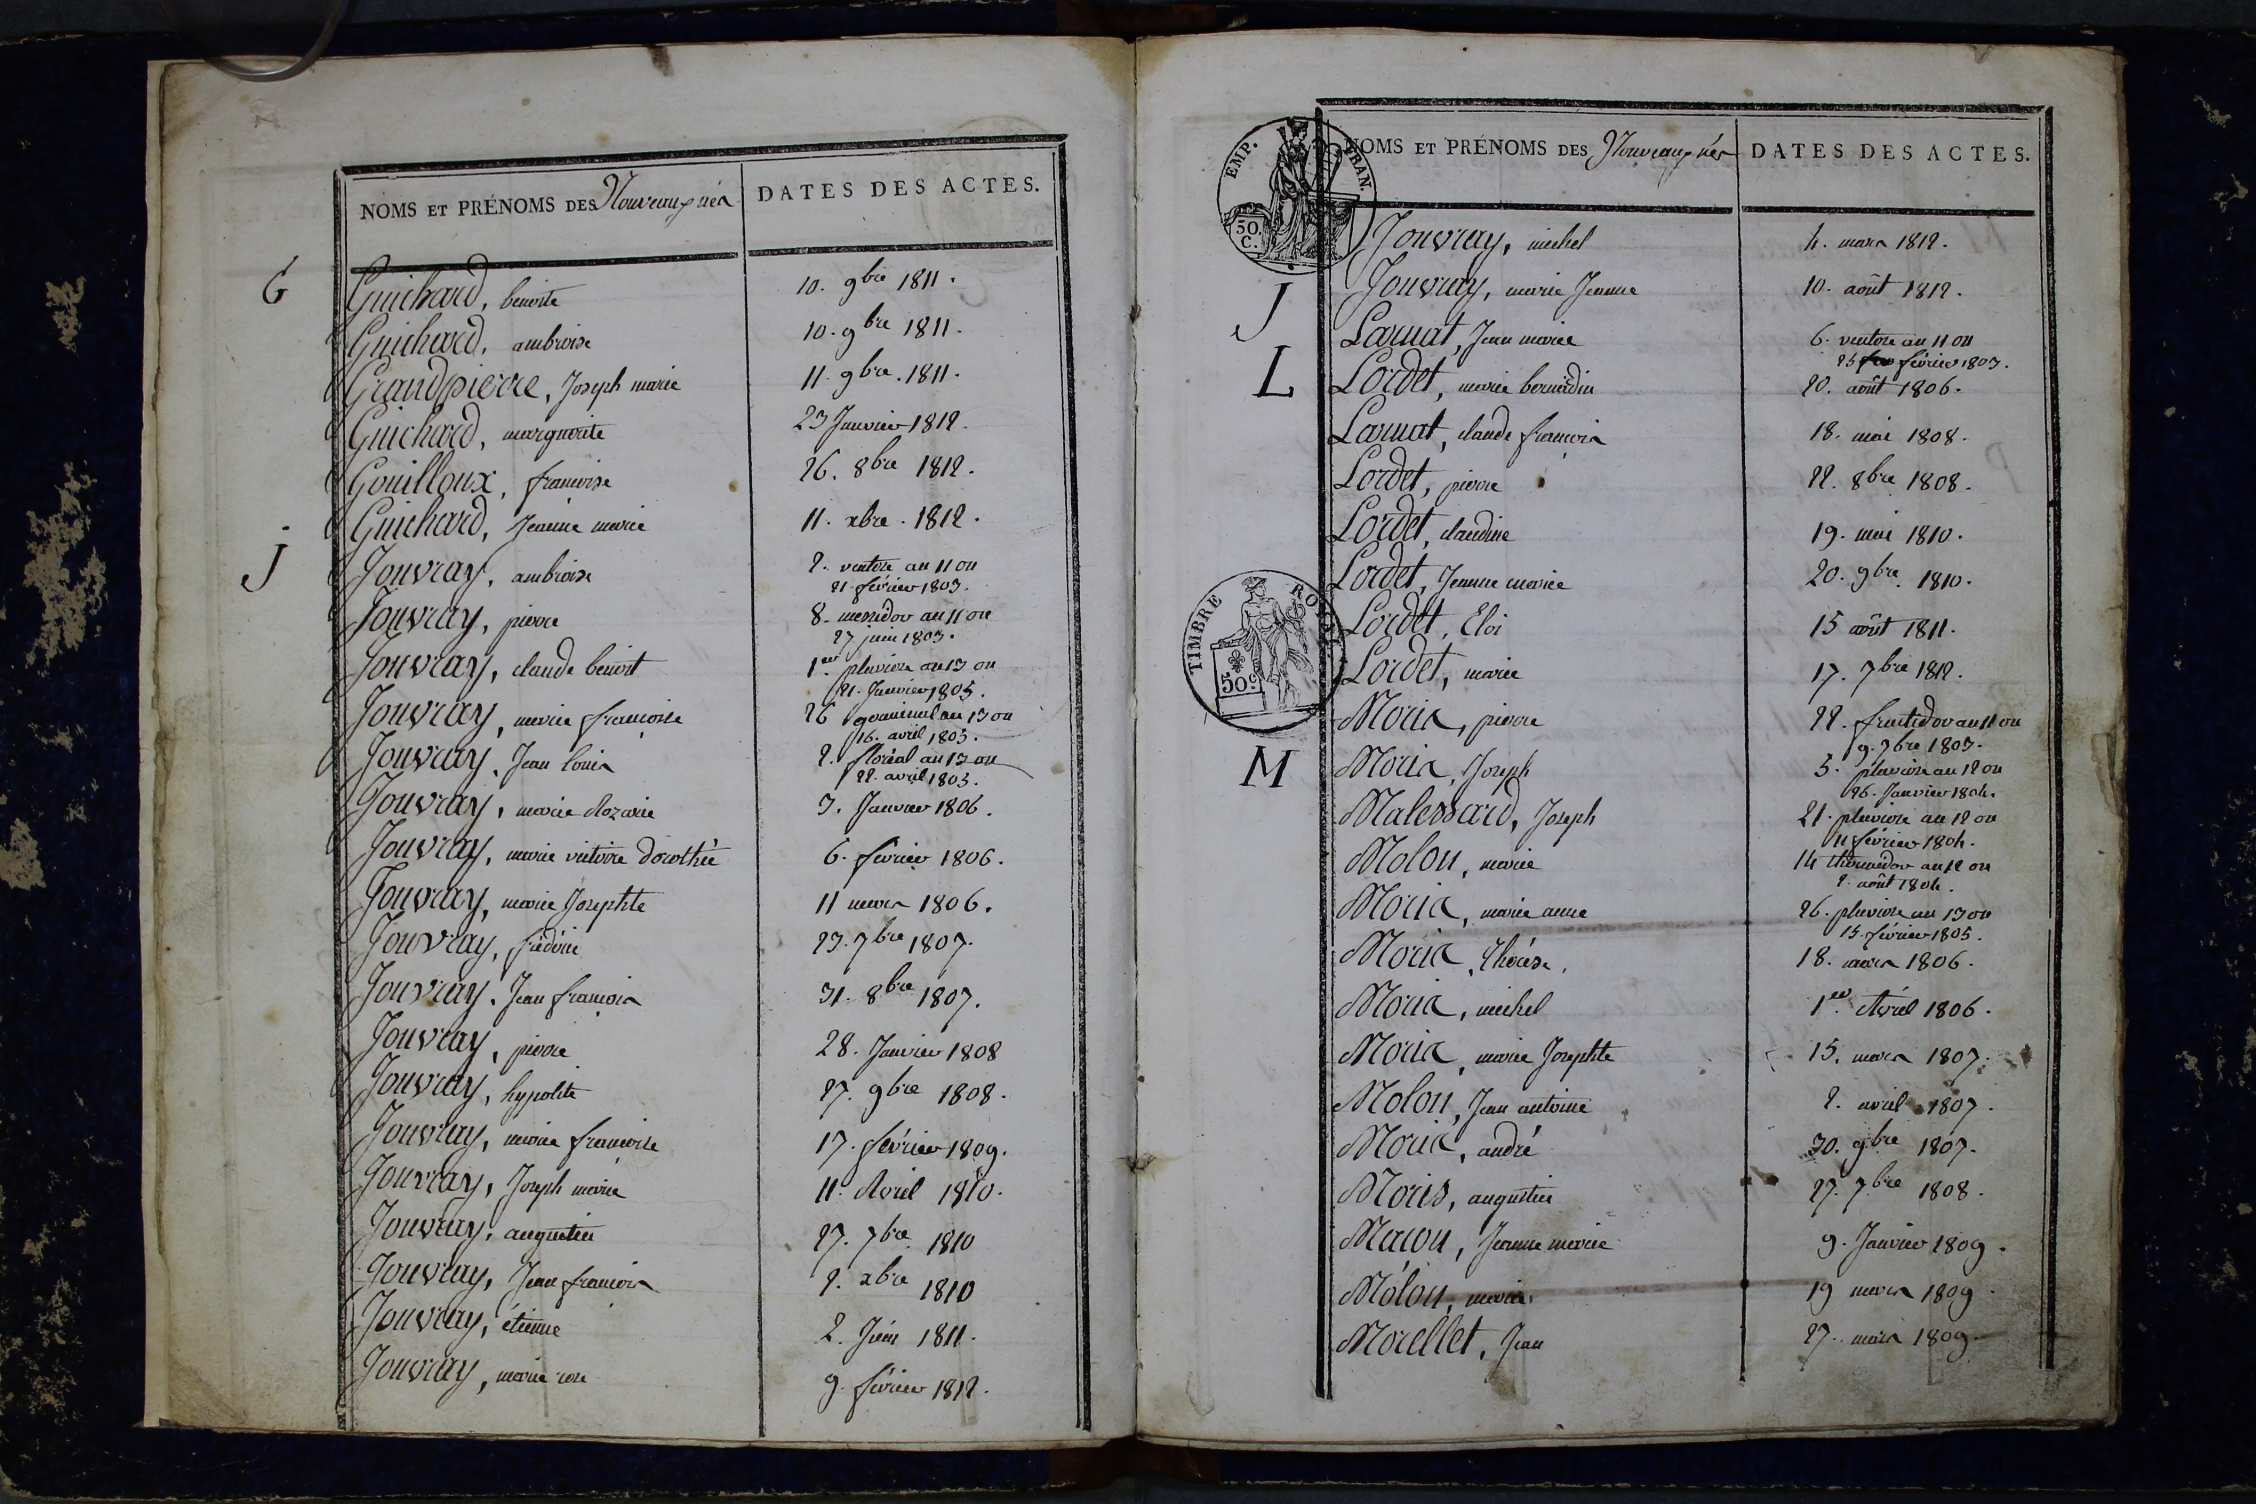 NOMS ET PRÉNOMS DES Nouveaux nés
DATES DES ACTES.
G
Guichard, benoite 10. 9bre 1811.
Guichard, ambroise 10. 9bre 1811.
Grandpierre, Joseph marie 11. 9bre. 1811.
Guichard, marguerite 23 Janvier 1812.
Gouilloux, françoise 26. 8bre 1812.
Guichard, Jeanne marie 11. xbre. 1812.
J
Jouvray, ambroise 2. ventose an 11 ou
21. février 1803.
Jouvray, pierre 8. messidor an 11 ou
27 juin 1803.
Jouvray, claude benoit 1er pluviose an 13 ou
21. Janvier 1805.
Jouvray, marie françoise 26 germinal an 13 ou
16. avril 1805.
Jouvray, Jean louis 2. floréal an 13 ou
22. avril 1805.
Jouvray, marie Rozarie 3. Janvier 1806.
Jouvray, marie victoire dorothée 6. février 1806.
Jouvray, marie Josephte 11 mars 1806.
Jouvray, fréderic 23. 7bre 1807.
Jouvray, Jean françois 31. 8bre 1807.
Jouvray, pierre 28. Janvier 1808
Jouvray, hypolite 27. 9bre 1808.
Jouvray, marie françoise 17. février 1809.
Jouvray, Joseph marie 11. Avril 1810.
Jouvray, augustin 27. 7bre 1810
Jouvray, Jean françois 2. xbre 1810
Jouvray, étienne 2. Juin 1811.
Jouvray, marie rose 9. février 1812.
EMP. FRAN.
50. C.
NOMS ET PRÉNOMS DES Nouveaux nés
DATES DES ACTES.
Jouvray, michel 4. mars 1812.
J
Jouvray, marie Jeanne 10. août 1812.
Larnat, Jean marie 6. ventose an 11 ou
25 février 1803.
L
Lordet, marie bernardin 20. août 1806.
Larnat, claude françois 18. mai 1808.
Lordet, pierre 22. 8bre 1808.
Lordet, claudine 19. mai 1810.
Lordet, Jeanne marie 20. 9bre 1810.
TIMBRE ROYAL
50c
Lordet, Eloi 15 août 1811.
Lordet, marie 17. 7bre 1812.
Moris, pierre 22. fructidor an 11 ou
9. 7bre 1803.
M
Moris, Joseph 5. pluviose an 12 ou
26. Janvier 1804.
Malessard, Joseph 21. pluviose an 12 ou
11 février 1804.
Molon, marie 14 thermidor an 12 ou
2. août 1804.
Moris, marie anne 26. pluviose an 13 ou
15. février 1805.
Moris, thérèse. 18. mars 1806.
Moris, michel 1er. Avril 1806.
Moris, marie Josephte 15. mars 1807.
Molon, Jean antoine 2. avril 1807.
Moris, andré 30. 9bre 1807.
Moris, augustin 27. 7bre 1808.
Macon, Jeanne marie 9. Janvier 1809.
Molon, marie 19 mars 1809.
Morellet, Jean 27. mars 1809.